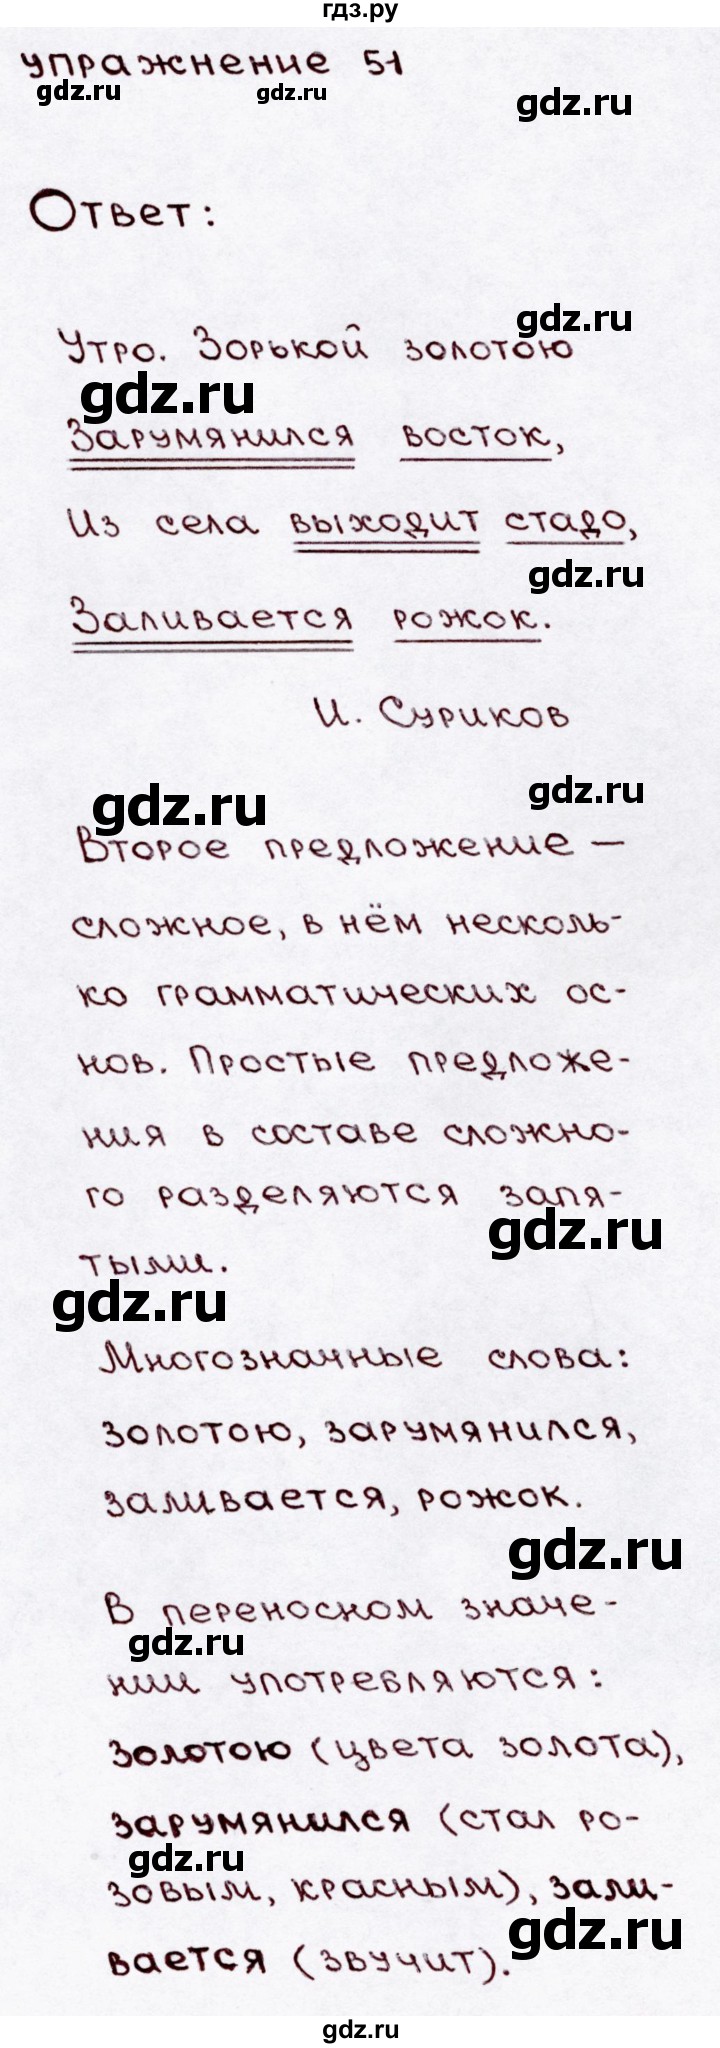 гдз.ру
упражнение 51
gdz.ru gdz.ru gdz.ru
Ответ:
gdz.ru
Утро. Зорькой золотою
gdz.ru
Зарумянился восток,
Из села выходит стадо,
gdz.ru
Заливается рожок.
И. Суриков
gdz.ru gdz.ru
Второе предложение –
сложное, в нём несколь-
ко грамматических ос-
нов. Простые предложе-
ния в составе сложно-
го разделяются запя-
gdz.ru
тыми.
gdz.ru
Многозначные слова:
золотою, зарумянился,
заливается, рожок.
gdz.ru
В переносном значе-
gdz.ru
нии употребляются:
золотою (цвета золота),
зарумянился (стал ро-
gdz.ru
зовым, красным), зали-
gdz.ru
вается (звучит).
gdz.ru